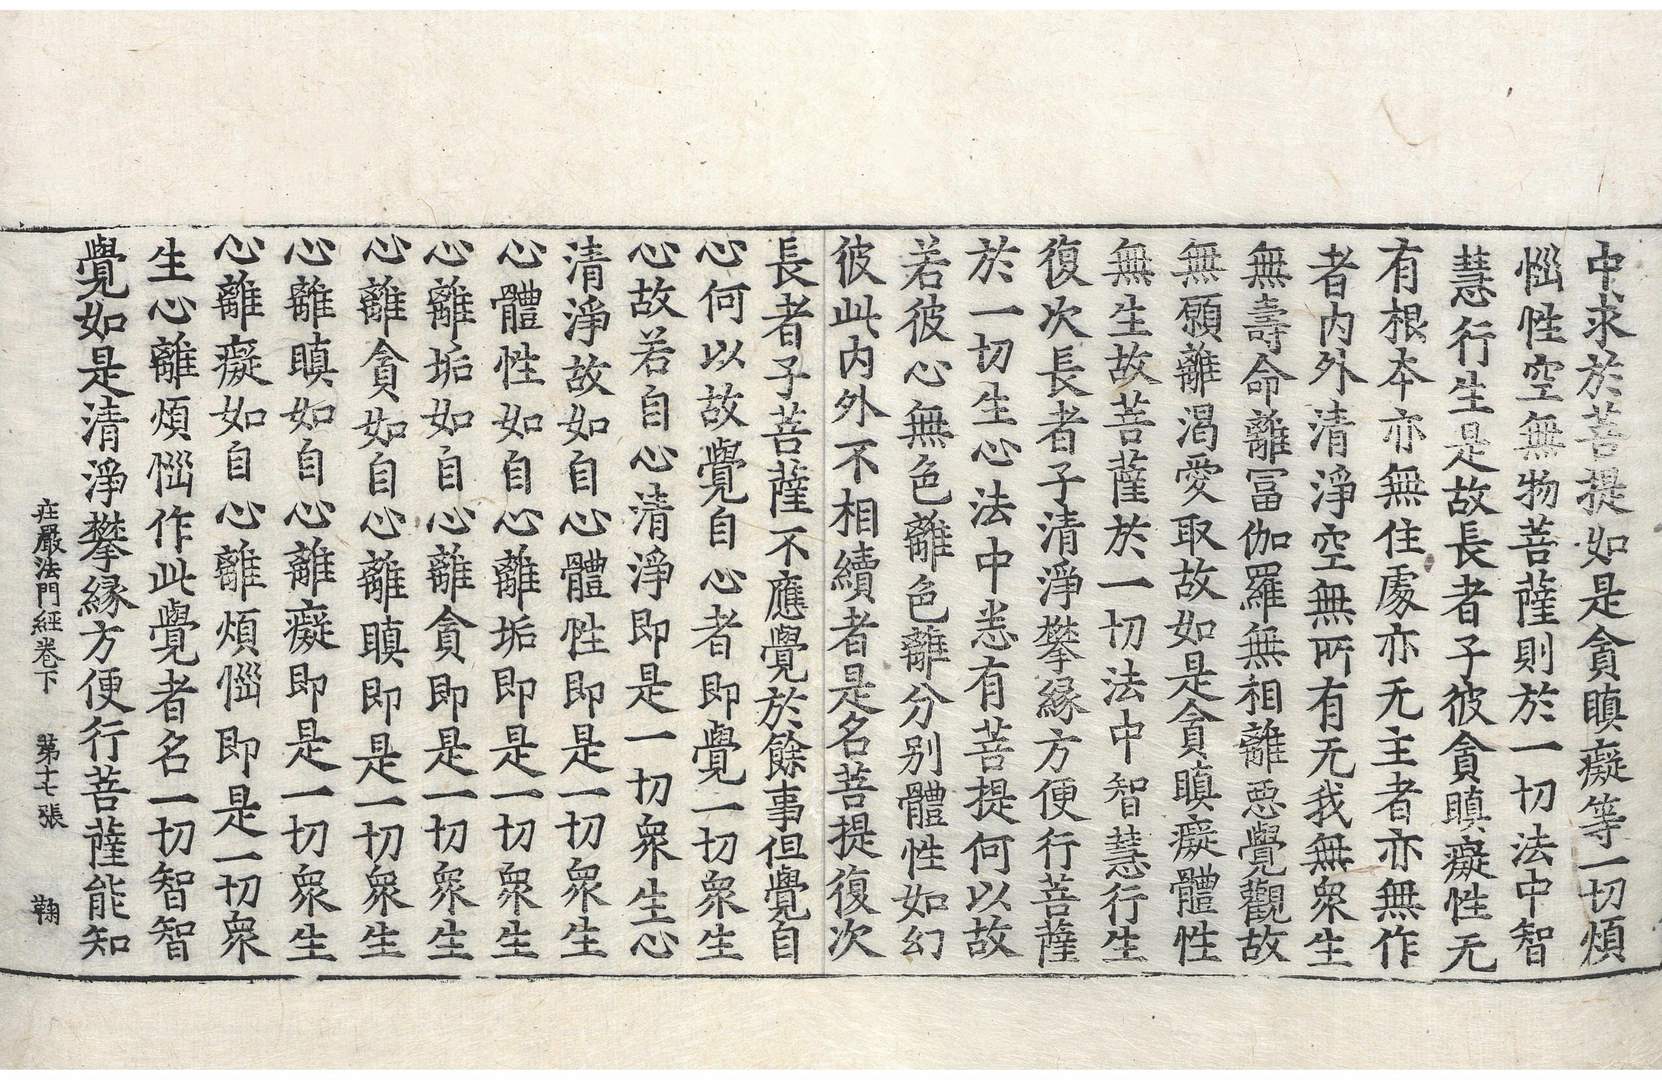 中求於菩提如是貪瞋癡等一切煩
惱性空無物菩薩則於一切法中智
慧行生是故長者子彼貪瞋癡性无
有根本亦無住處亦无主者亦無作
者内外清淨空無所有无我無衆生
無壽命離冨伽羅無相離惡覺觀故
無願離渴愛取故如是貪瞋癡體性
無生故菩薩於一切法中智慧行生
復次長者子清淨攀縁方便行菩薩
於一切生心法中悉有菩提何以故
若彼心無色離色離分別體性如幻
彼此内外不相續者是名菩提復次
長者子菩薩不應覺於餘事但覺自
心何以故覺自心者即覺一切衆生
心故若自心清淨即是一切衆生心
清淨故如自心體性即是一切衆生
心體性如自心離垢即是一切衆生
心離垢如自心離貪即是一切衆生
心離貪如自心離瞋即是一切衆生
心離瞋如自心離癡即是一切衆生
心離癡如自心離煩惱即是一切衆
生心離煩惱作此覺者名一切智智
覺如是清淨攀縁方便行菩薩能知
庄嚴法門經卷下 第十七張 鞠